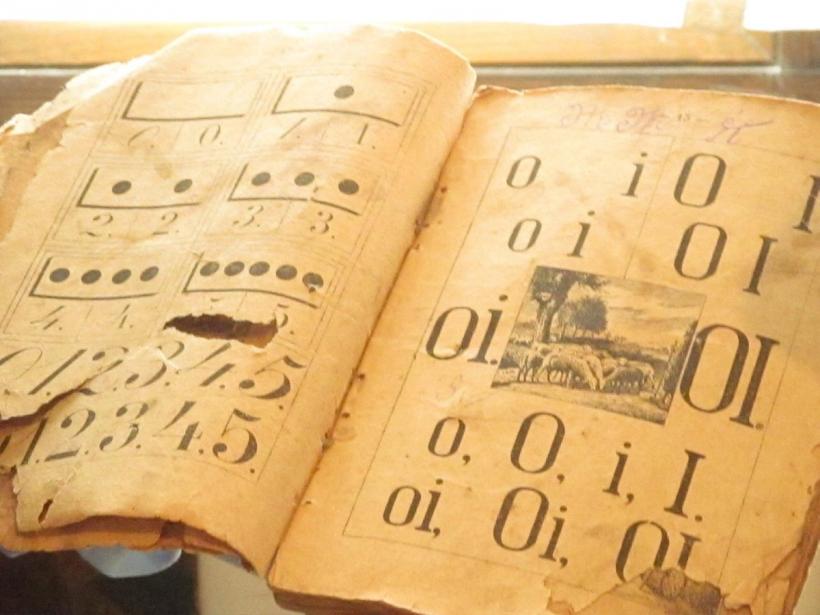 0. 0. 1. 1.
2. 2. 3. 3.
4. 4. 5.
0.1.2.3.4.5.
1.2.3.4.5.
o i O I
o i O I
Oi. OI.
o, O, i, I.
oi, Oi, OI